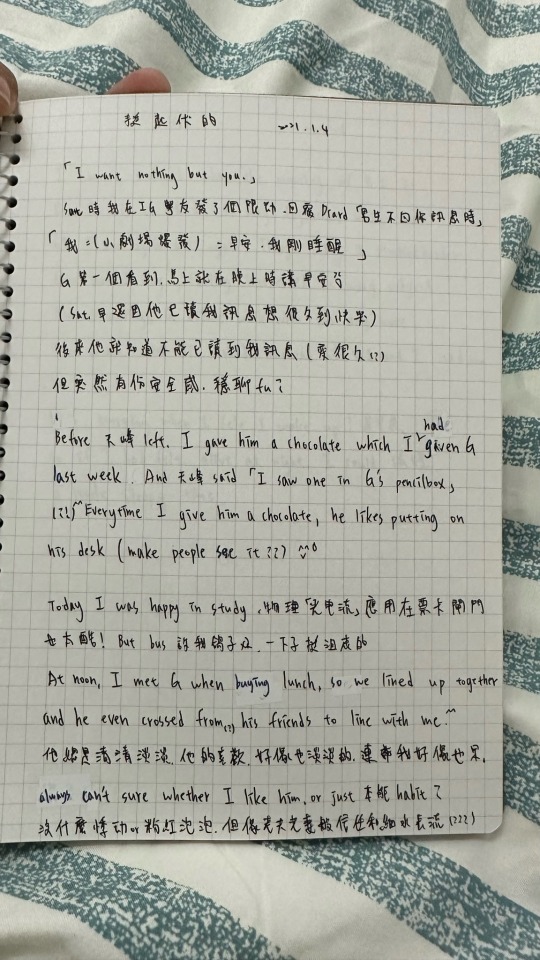 挺起伏的 2021.1.4
「I want nothing but you.」
Sat.時我在IG摯友發了個限動.回覆Dcard「男生不回你訊息時」
「我:(小劇場爆發) :早安.我剛睡醒」
G第一個看到.馬上就在晚上時講早安
(Sat.早還因他已讀我訊息想很久到快哭)
後來他就知道不能已讀到我訊息(哭很久??)
但突然有份安全感.穩聊fu?
Before 天峰 left. I gave him a chocolate which I had given G
last week. And 天峰 said「I saw one in G's pencilbox」
(?!)~Everytime I give him a chocolate, he likes putting on
his desk (make people see it??) ^^0
Today I was happy in study.物理「光電流」應用在票卡閘門
也太酷! But bus 一下子挺沮喪的
At noon, I met G when buying lunch, so we lined up together
and he even crossed from(?) his friends to line with me.^
他總是清清淡淡.他的喜歡.好像也淡淡的.連帶我好像也是.
always can't sure whether I like him, or just 本能 habit?
沒什麼悸動or粉紅泡泡.但像老夫老妻般信任和細水長流(???)